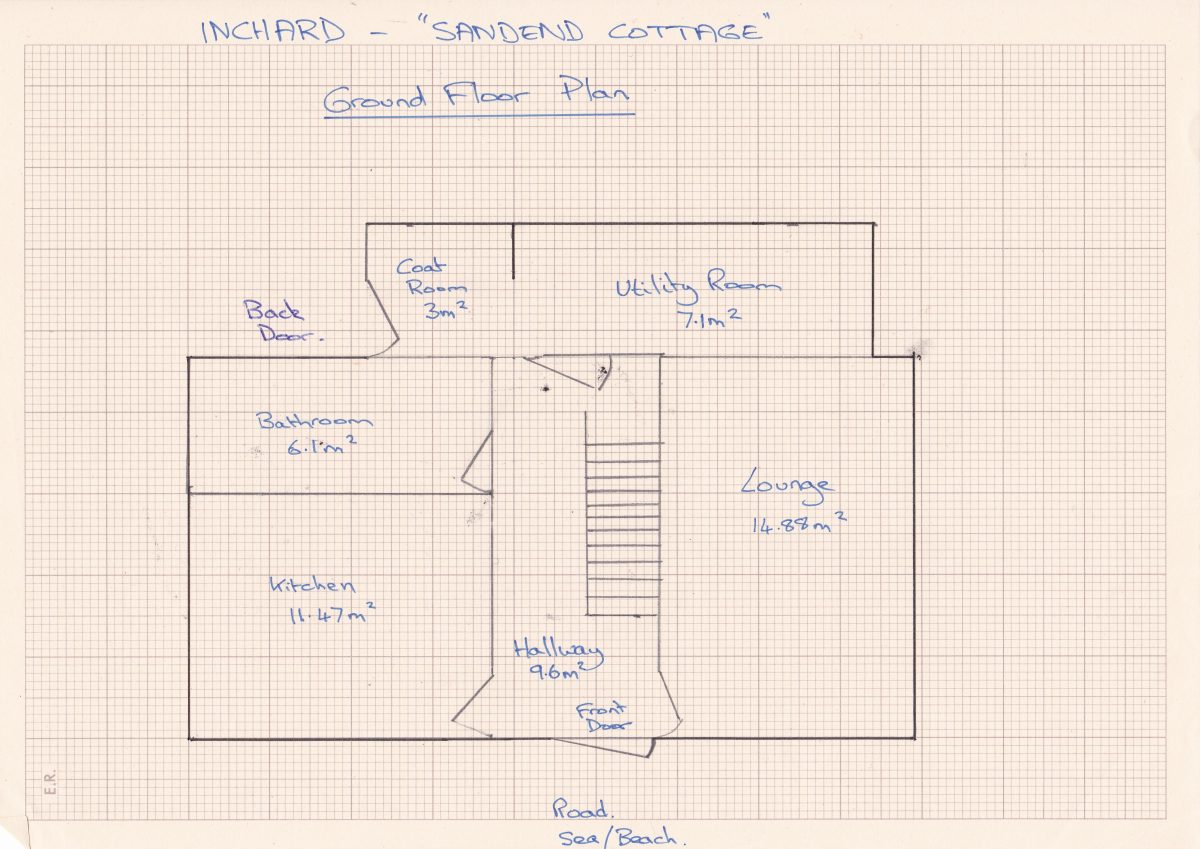 INCHARD - "SANDEND COTTAGE"
Ground Floor Plan
Coat
Room
3m²
Utility Room
7.1m²
Back
Door.
Bathroom
6.1m²
Lounge
14.88m²
Kitchen
11.47m²
Hallway
9.6m²
Front
Door
E.R.
Road.
Sea/Beach.